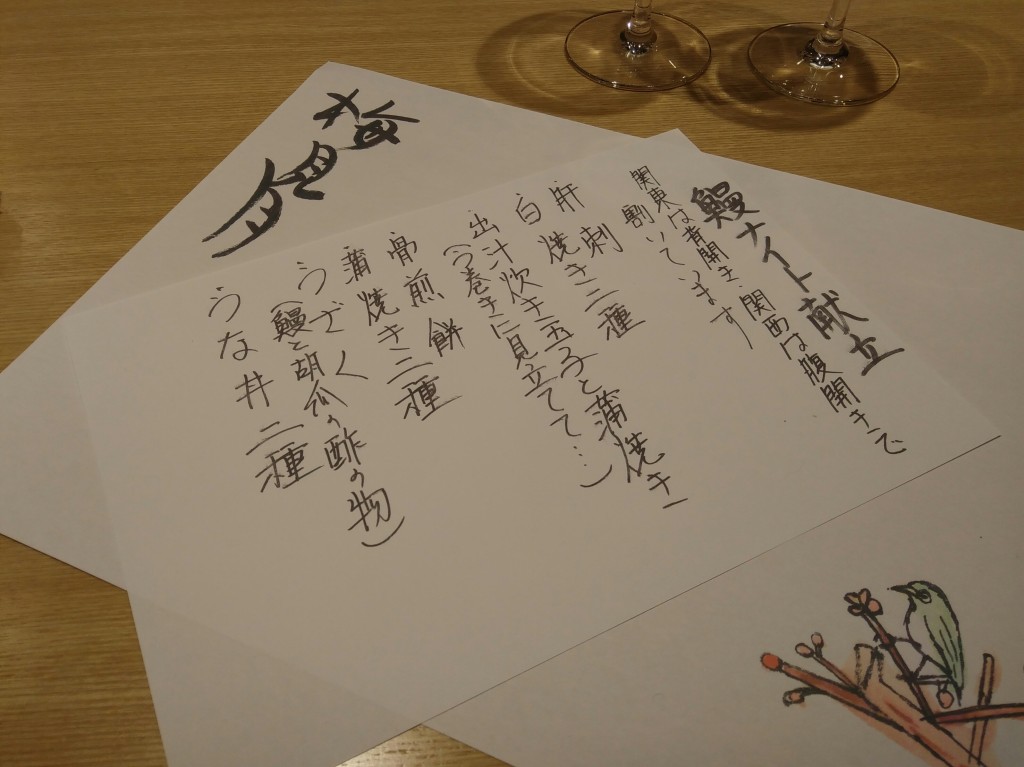 鰻ナイト献立
関東は背開き 関西は腹開きで
割いています
肝刺
白焼き三種
出汁炊き玉子と蒲焼き
(う巻きに見立てて…)
骨煎餅
蒲焼き三種
うざく
(鰻と胡瓜の酢の物)
うな丼 二種